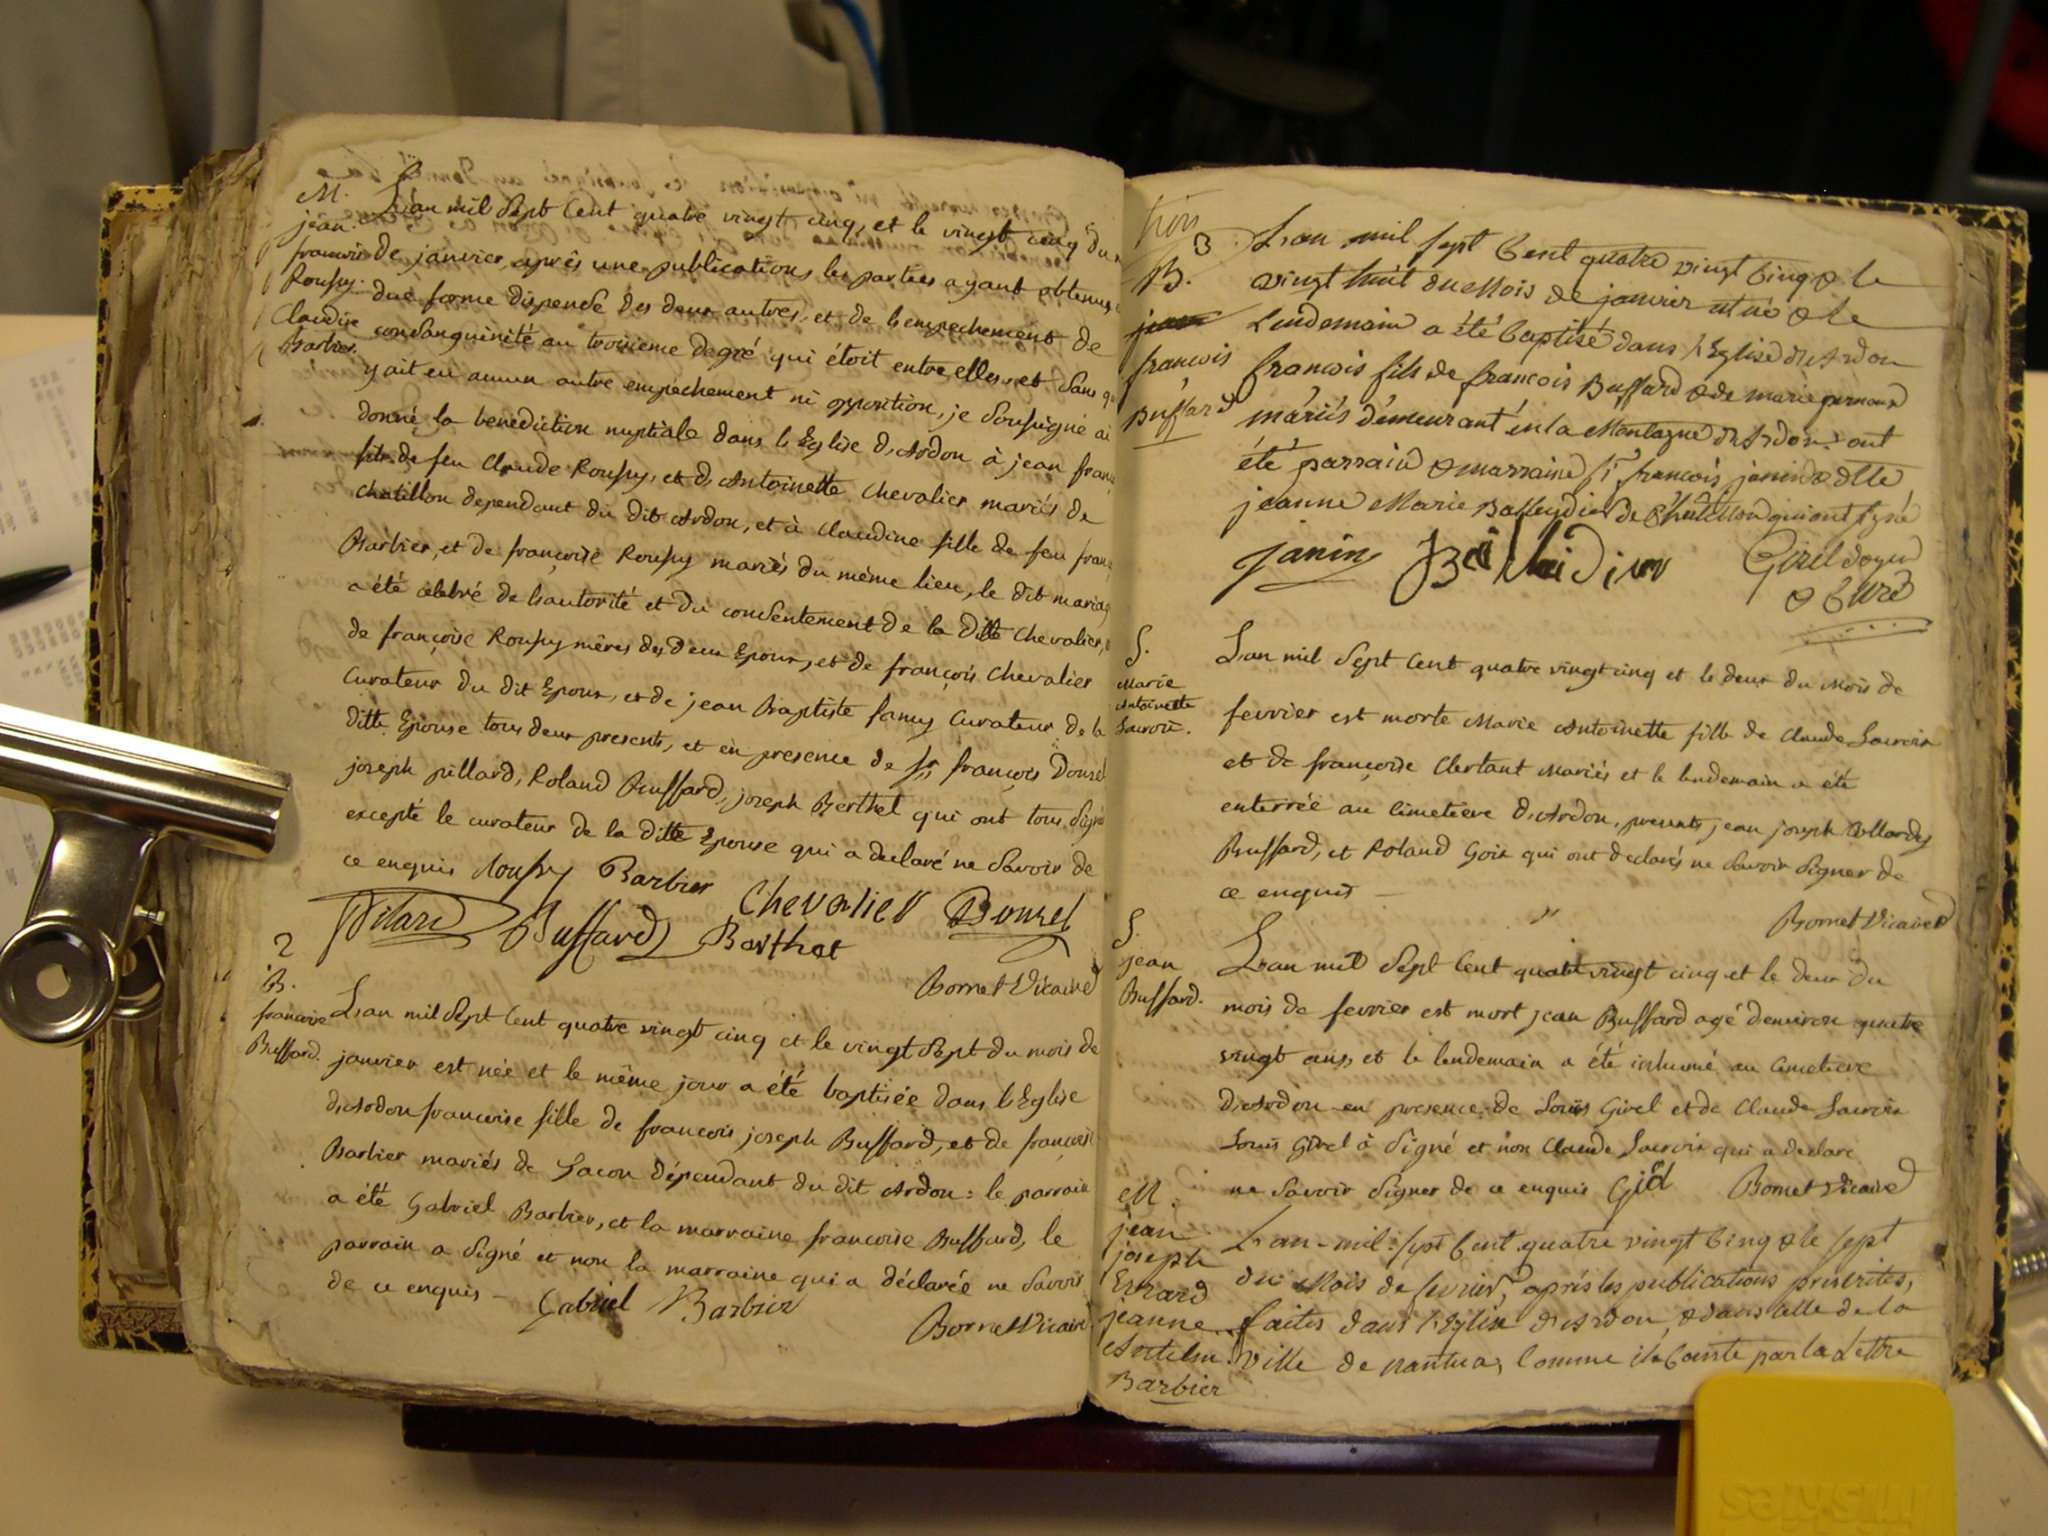 M.
jean
francois
Roussy.
Claudine
Barbier.
L'an mil Sept Cent quatre vingt cinq, et le vingt cinq du
de janvier, après une publication, les parties ayant obtenus
due forme dispense des deux autres, et de l'empechement de
consanguinité au troisieme degré qui étoit entre elles, et sans q
y ait eu aucun autre empechement ni opposition, je soussigné ai
donné la benediction nuptiale dans l'Eglise d'Ardon à jean fran
fils de feu Claude Roussy, et d'Antoinette Chevalier mariés de
Chatillon dependant du dit Ardon, et à Claudine fille de feu fran
Barbier, et de françoise Roussy mariés du même lieu, le dit mariag
a été célébré de l'autorité et du consentement de la ditte Chevalier,
de françoise Roussy mères des deux Epoux, et de françois Chevalier
Curateur du dit Epoux, et de jean Baptiste famy Curateur de la
ditte Epouse tous deux presents, et en presence de Sr françois Douzel
joseph pillard, Roland Buffard, joseph Berthet qui ont tous signé
excepté le curateur de la ditte Epouse qui a declaré ne Savoir de
ce enquis Roussy Barbier Chevalier Douzel
Pilard Buffard Berthet
Bornet Vicaire
2
B.
francoise
Buffard.
L'an mil Sept Cent quatre vingt cinq et le vingt Sept du mois de
janvier est née et le même jour a été baptisée dans l'Eglise
d'Ardon francoise fille de francois joseph Buffard, et de françoise
Barbier mariés de Lacou dépendant du dit Ardon: le parrain
a été Gabriel Barbier, et la marraine francoise Buffard, le
parrain a Signé et non la marraine qui a déclarée ne Savoir
de ce enquis – Gabriel Barbier
Bornet Vicaire
3
B.
jean
francois
Buffard
L'an mil sept Cent quatre vingt Cinq & le
vingt huit du Mois de janvier est né & le
Lendemain a été baptisé dans l'Eglise d'Ardon
francois fils de francois Buffard & de marie pernoud
mariés demeurant en la Montagne d'Ardon: ont
été parrain & marraine Sr francois janin & dlle
jeanne Marie Balleydier de Chatillon qui ont signé
janin Balleidier Girel doyen
& Curé
S.
Marie
Antoinette
Lacroix.
L'an mil Sept Cent quatre vingt cinq et le deux du Mois de
fevrier est morte Marie Antoinette fille de Claude Lacroix
et de françoise Clertant Mariés et le lendemain a été
enterrée au Cimetiere d'Ardon, presents jean joseph Collardey
Buffard, et Roland Goix qui ont declarés ne Savoir Signer de
ce enquis –
Bornet Vicaire
S.
jean
Buffard.
L'an mil Sept Cent quatre vingt cinq et le deux du
mois de fevrier est mort jean Buffard agé d'environ quatre
vingt ans, et le lendemain a été inhumé au Cimetiere
d'Ardon en presence de Louis Girel et de Claude Lacroix
Louis Girel à Signé et non Claude Lacroix qui a declaré
ne Savoir Signer de ce enquis Girel Bornet Vicaire
M.
jean
joseph
Evrard
jeanne
Antelm.
Barbier
L'an mil: sept Cent quatre vingt Cinq & le sept
du Mois de fevrier, après les publications prescrites,
faites dans l'Eglise d'Ardon, & dans celle de la
ville de nantua, Comme il Conste par la Lettre